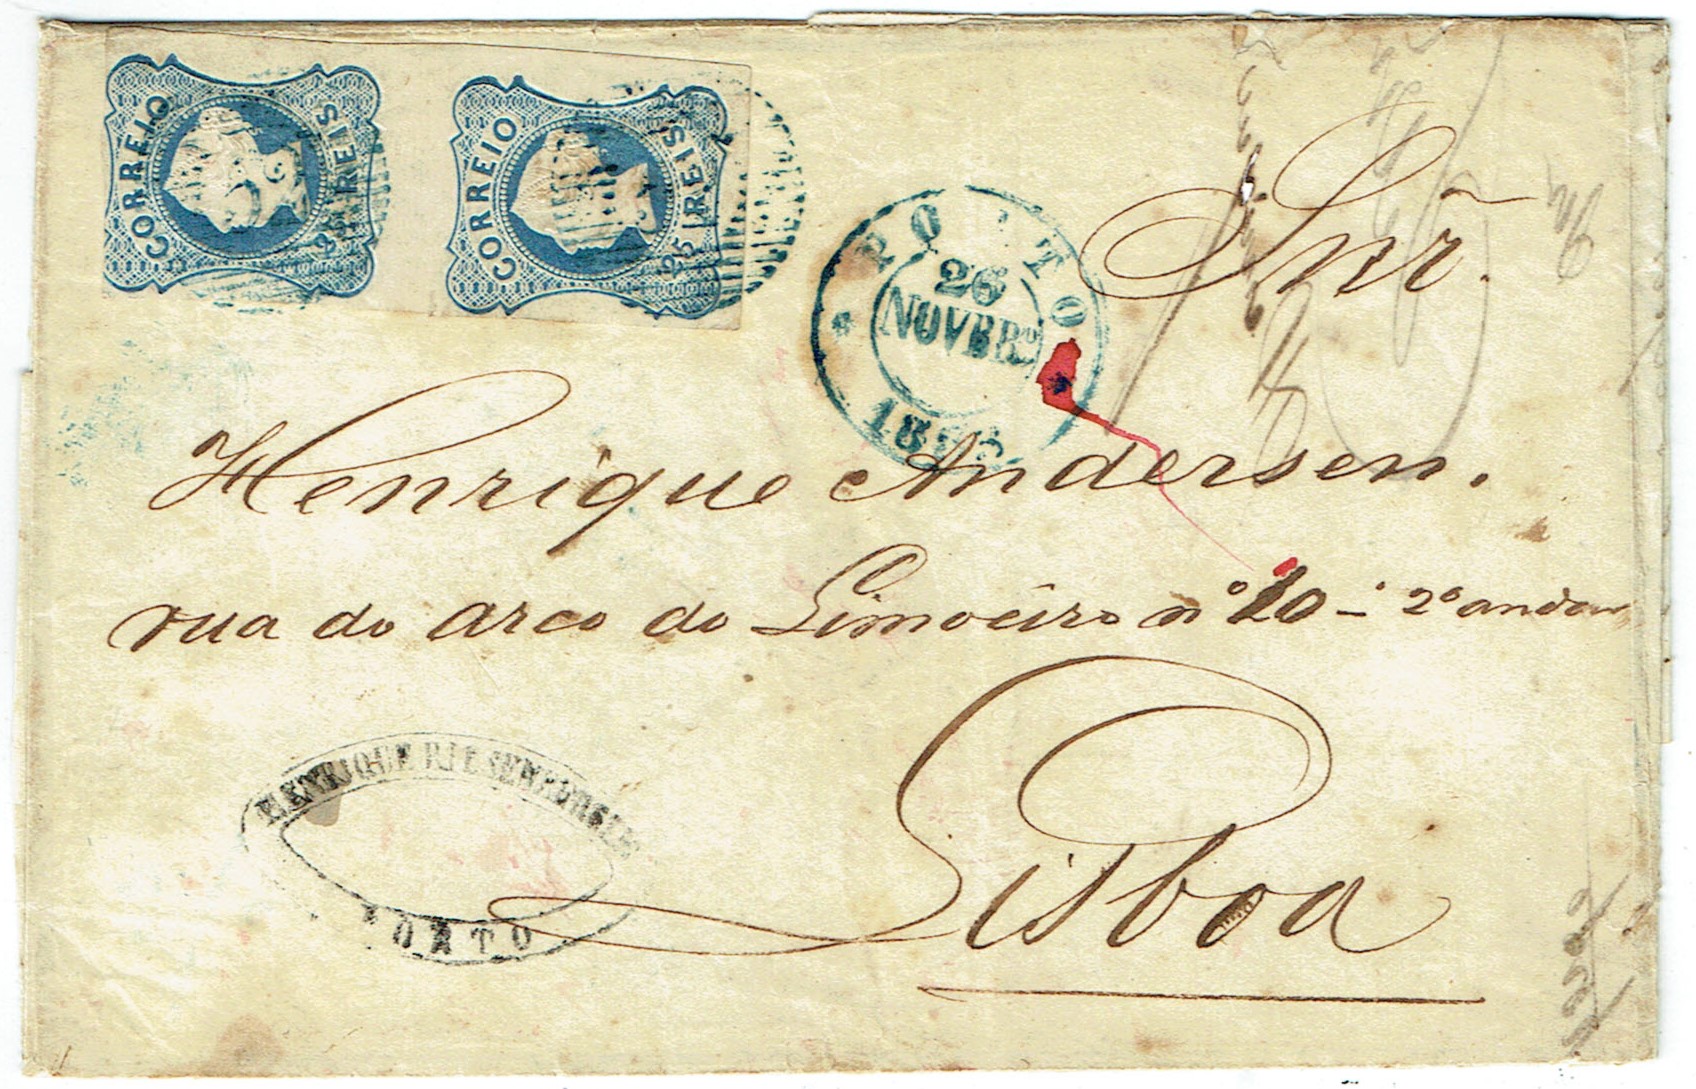 CORREIO 25 REIS
CORREIO 25 REIS
PORTO
26
NOVBRº
Snr.
Henrique Andersen.
rua do arco do Limoeiro nº 20 - 2º andar
Lisboa
HENRIQUE
PORTO